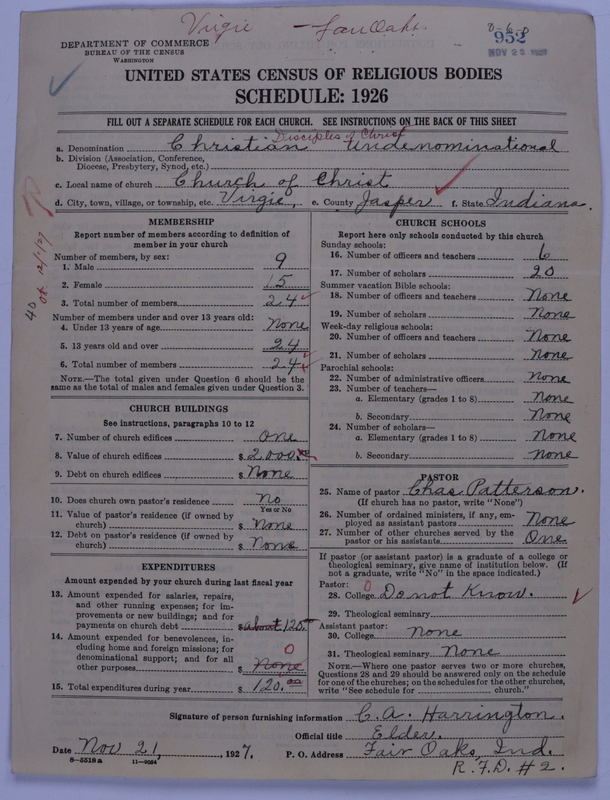 Virgie - Fair Oaks
8-6-0
952
NOV 23 1927
DEPARTMENT OF COMMERCE
BUREAU OF THE CENSUS
WASHINGTON
UNITED STATES CENSUS OF RELIGIOUS BODIES
SCHEDULE: 1926
FILL OUT A SEPARATE SCHEDULE FOR EACH CHURCH. SEE INSTRUCTIONS ON THE BACK OF THIS SHEET
Disciples of Christ
a. Denomination Christian Undenominational
b. Division (Association, Conference,
Diocese, Presbytery, Synod, etc.)
c. Local name of church Church of Christ
d. City, town, village, or township, etc. Virgie, e. County Jasper f. State Indiana.
MEMBERSHIP
Report number of members according to definition of
member in your church
Number of members, by sex:
1. Male 9
2. Female 15
3. Total number of members 24
Number of members under and over 13 years old:
4. Under 13 years of age None
5. 13 years old and over 24
6. Total number of members 24
NOTE.—The total given under Question 6 should be the
same as the total of males and females given under Question 3.
CHURCH BUILDINGS
See instructions, paragraphs 10 to 12
7. Number of church edifices one
8. Value of church edifices $ 2000.00
9. Debt on church edifices $ None
10. Does church own pastor's residence No
Yes or No
11. Value of pastor's residence (if owned by
church) $ None
12. Debt on pastor's residence (if owned by
church) $ None
EXPENDITURES
Amount expended by your church during last fiscal year
13. Amount expended for salaries, repairs,
and other running expenses; for im-
provements or new buildings; and for
payments on church debt $ about 120.00
14. Amount expended for benevolences, in-
cluding home and foreign missions; for
denominational support; and for all
other purposes $ None 0
15. Total expenditures during year $ 120.00
CHURCH SCHOOLS
Report here only schools conducted by this church
Sunday schools:
16. Number of officers and teachers 6
17. Number of scholars 20
Summer vacation Bible schools:
18. Number of officers and teachers None
19. Number of scholars None
Week-day religious schools:
20. Number of officers and teachers None
21. Number of scholars None
Parochial schools:
22. Number of administrative officers None
23. Number of teachers—
a. Elementary (grades 1 to 8) None
b. Secondary None
24. Number of scholars—
a. Elementary (grades 1 to 8) None
b. Secondary None
PASTOR
25. Name of pastor Chas Patterson.
(If church has no pastor, write "None")
26. Number of ordained ministers, if any, em-
ployed as assistant pastors None
27. Number of other churches served by the
pastor or his assistants One
If pastor (or assistant pastor) is a graduate of a college or
theological seminary, give name of institution below. (If
not a graduate, write "No" in the space indicated.)
Pastor: 0
28. College Do not Know.
29. Theological seminary
Assistant pastor:
30. College None
31. Theological seminary None
NOTE.—Where one pastor serves two or more churches,
Questions 28 and 29 should be answered only on the schedule
for one of the churches; on the schedules for the other churches,
write "See schedule for church."
Signature of person furnishing information C. A. Harrington.
Official title Elder.
Date Nov 21, 1927. P. O. Address Fair Oaks, Ind.
R.F.D. #2.
8-5518a 11-9034